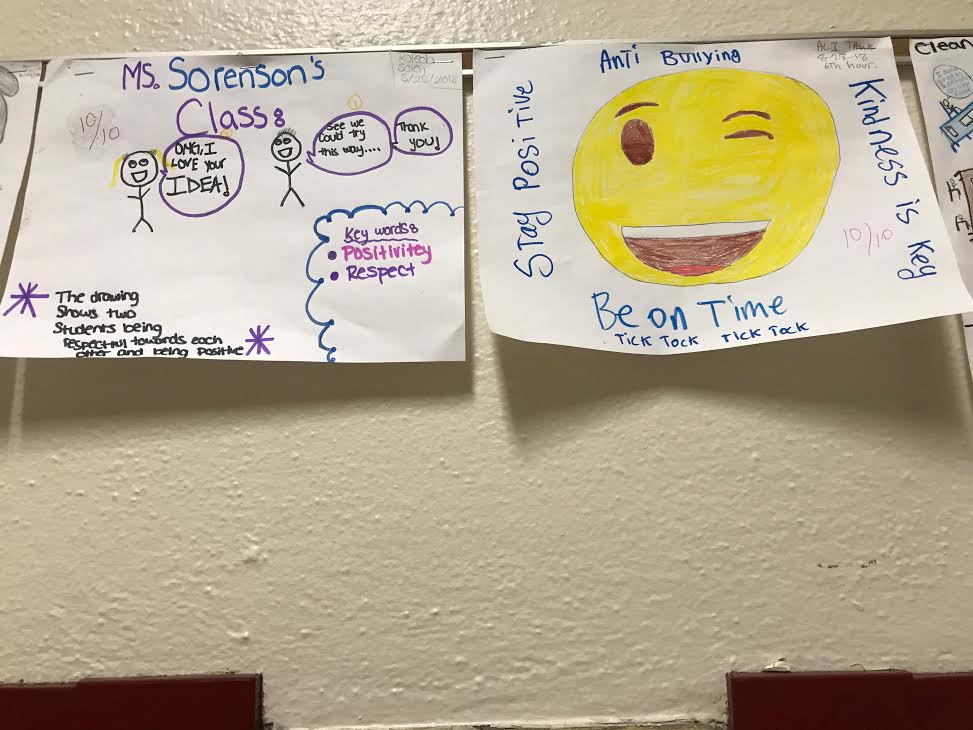 Ms. Sorenson's
Class:
5/23/2018
10/10
OMG, I
LOVE your
IDEA!
See we
could try
this way....
Thank
you!
Key words:
• Positivitey
• Respect
The drawing
Shows two
Students being
respectful towards each
other and being positive
Anti Bullying
ALI
8-28-18
6th hour.
Stay Positive
Kindness is Key
10/10
Be on Time
Tick Tock Tick Tock
Clean